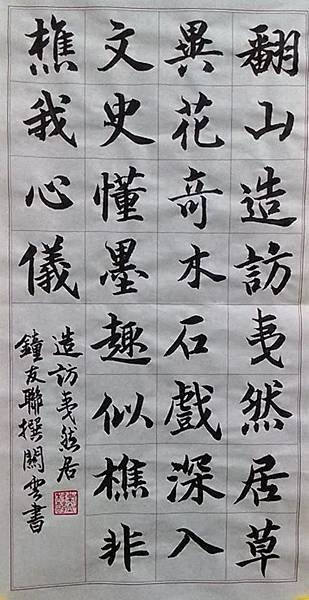 翻山造訪夷然居草
異花奇木石戲深入
文史懂墨趣似樵非
樵我心儀
造訪夷然居
鐘友聯撰關雲書